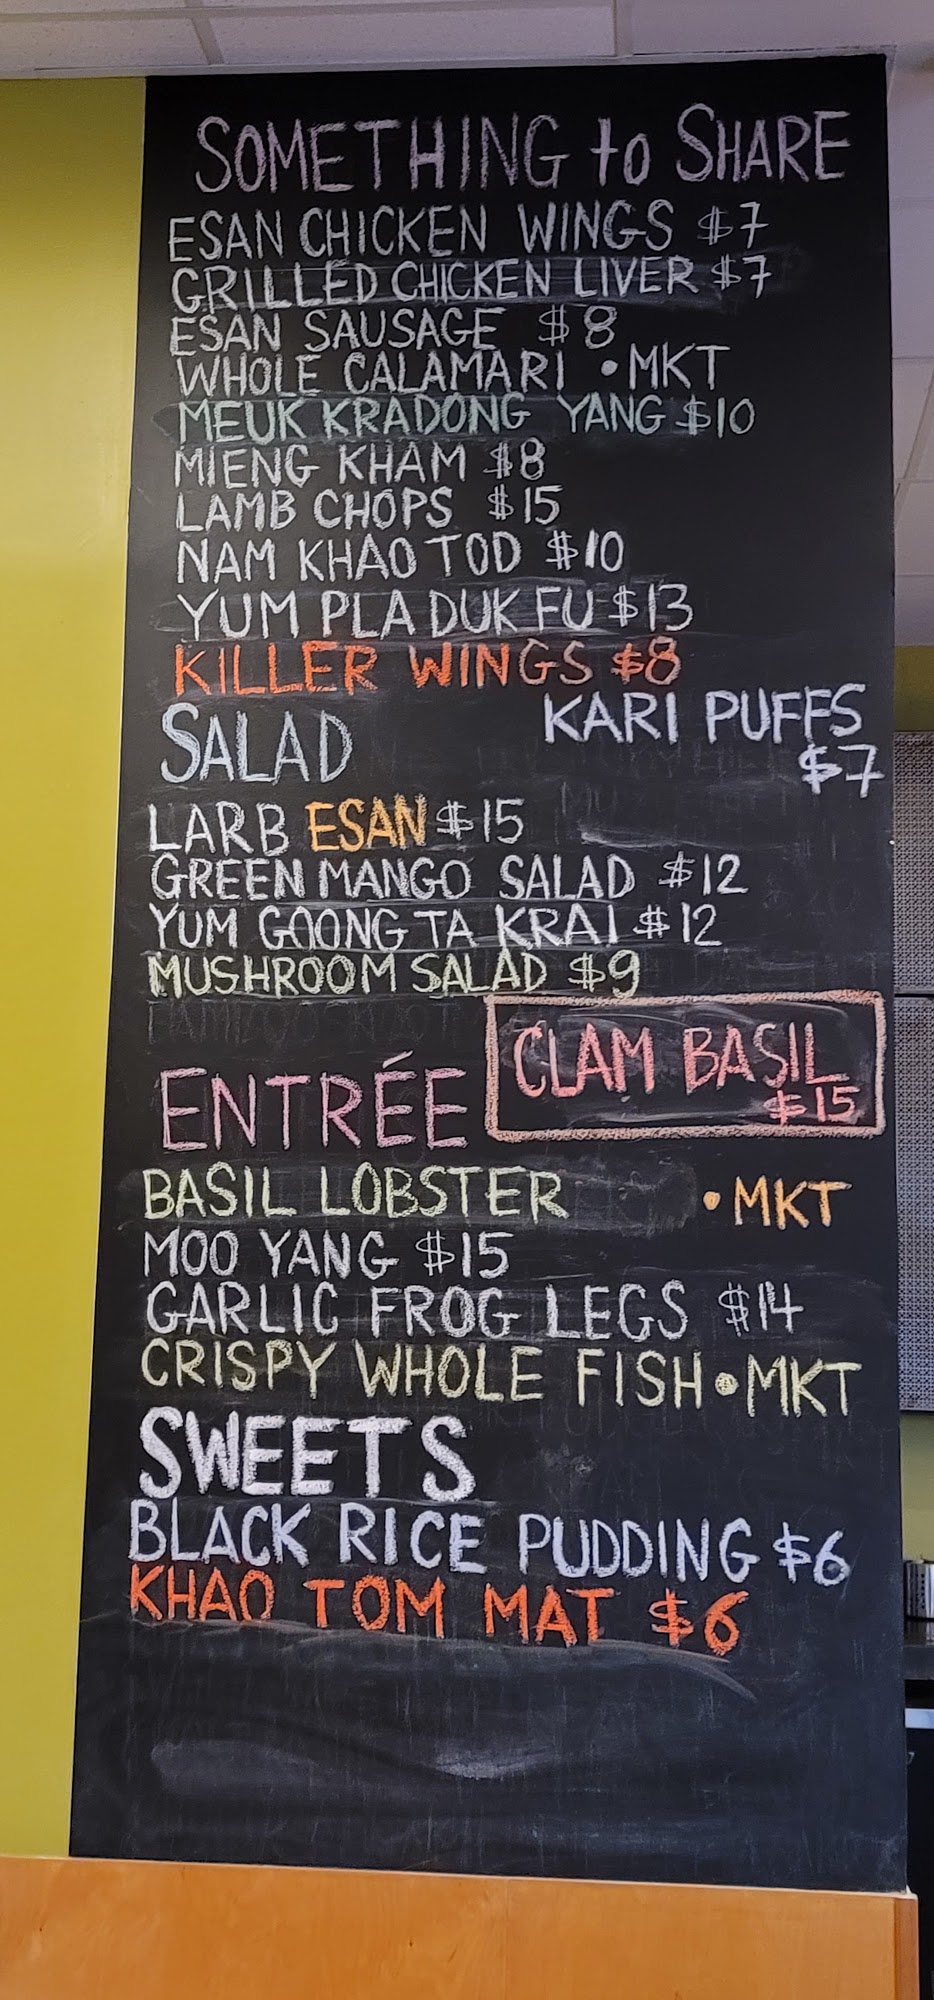 SOMETHING to SHARE
ESAN CHICKEN WINGS $7
GRILLED CHICKEN LIVER $7
ESAN SAUSAGE $8
WHOLE CALAMARI • MKT
MEUK KRADONG YANG $10
MIENG KHAM $8
LAMB CHOPS $15
NAM KHAO TOD $10
YUM PLA DUK FU $13
KILLER WINGS $8
KARI PUFFS
$7
SALAD
LARB ESAN $15
GREEN MANGO SALAD $12
YUM GOONG TA KRAI $12
MUSHROOM SALAD $9
CLAM BASIL
$15
ENTRÉE
BASIL LOBSTER • MKT
MOO YANG $15
GARLIC FROG LEGS $14
CRISPY WHOLE FISH • MKT
SWEETS
BLACK RICE PUDDING $6
KHAO TOM MAT $6